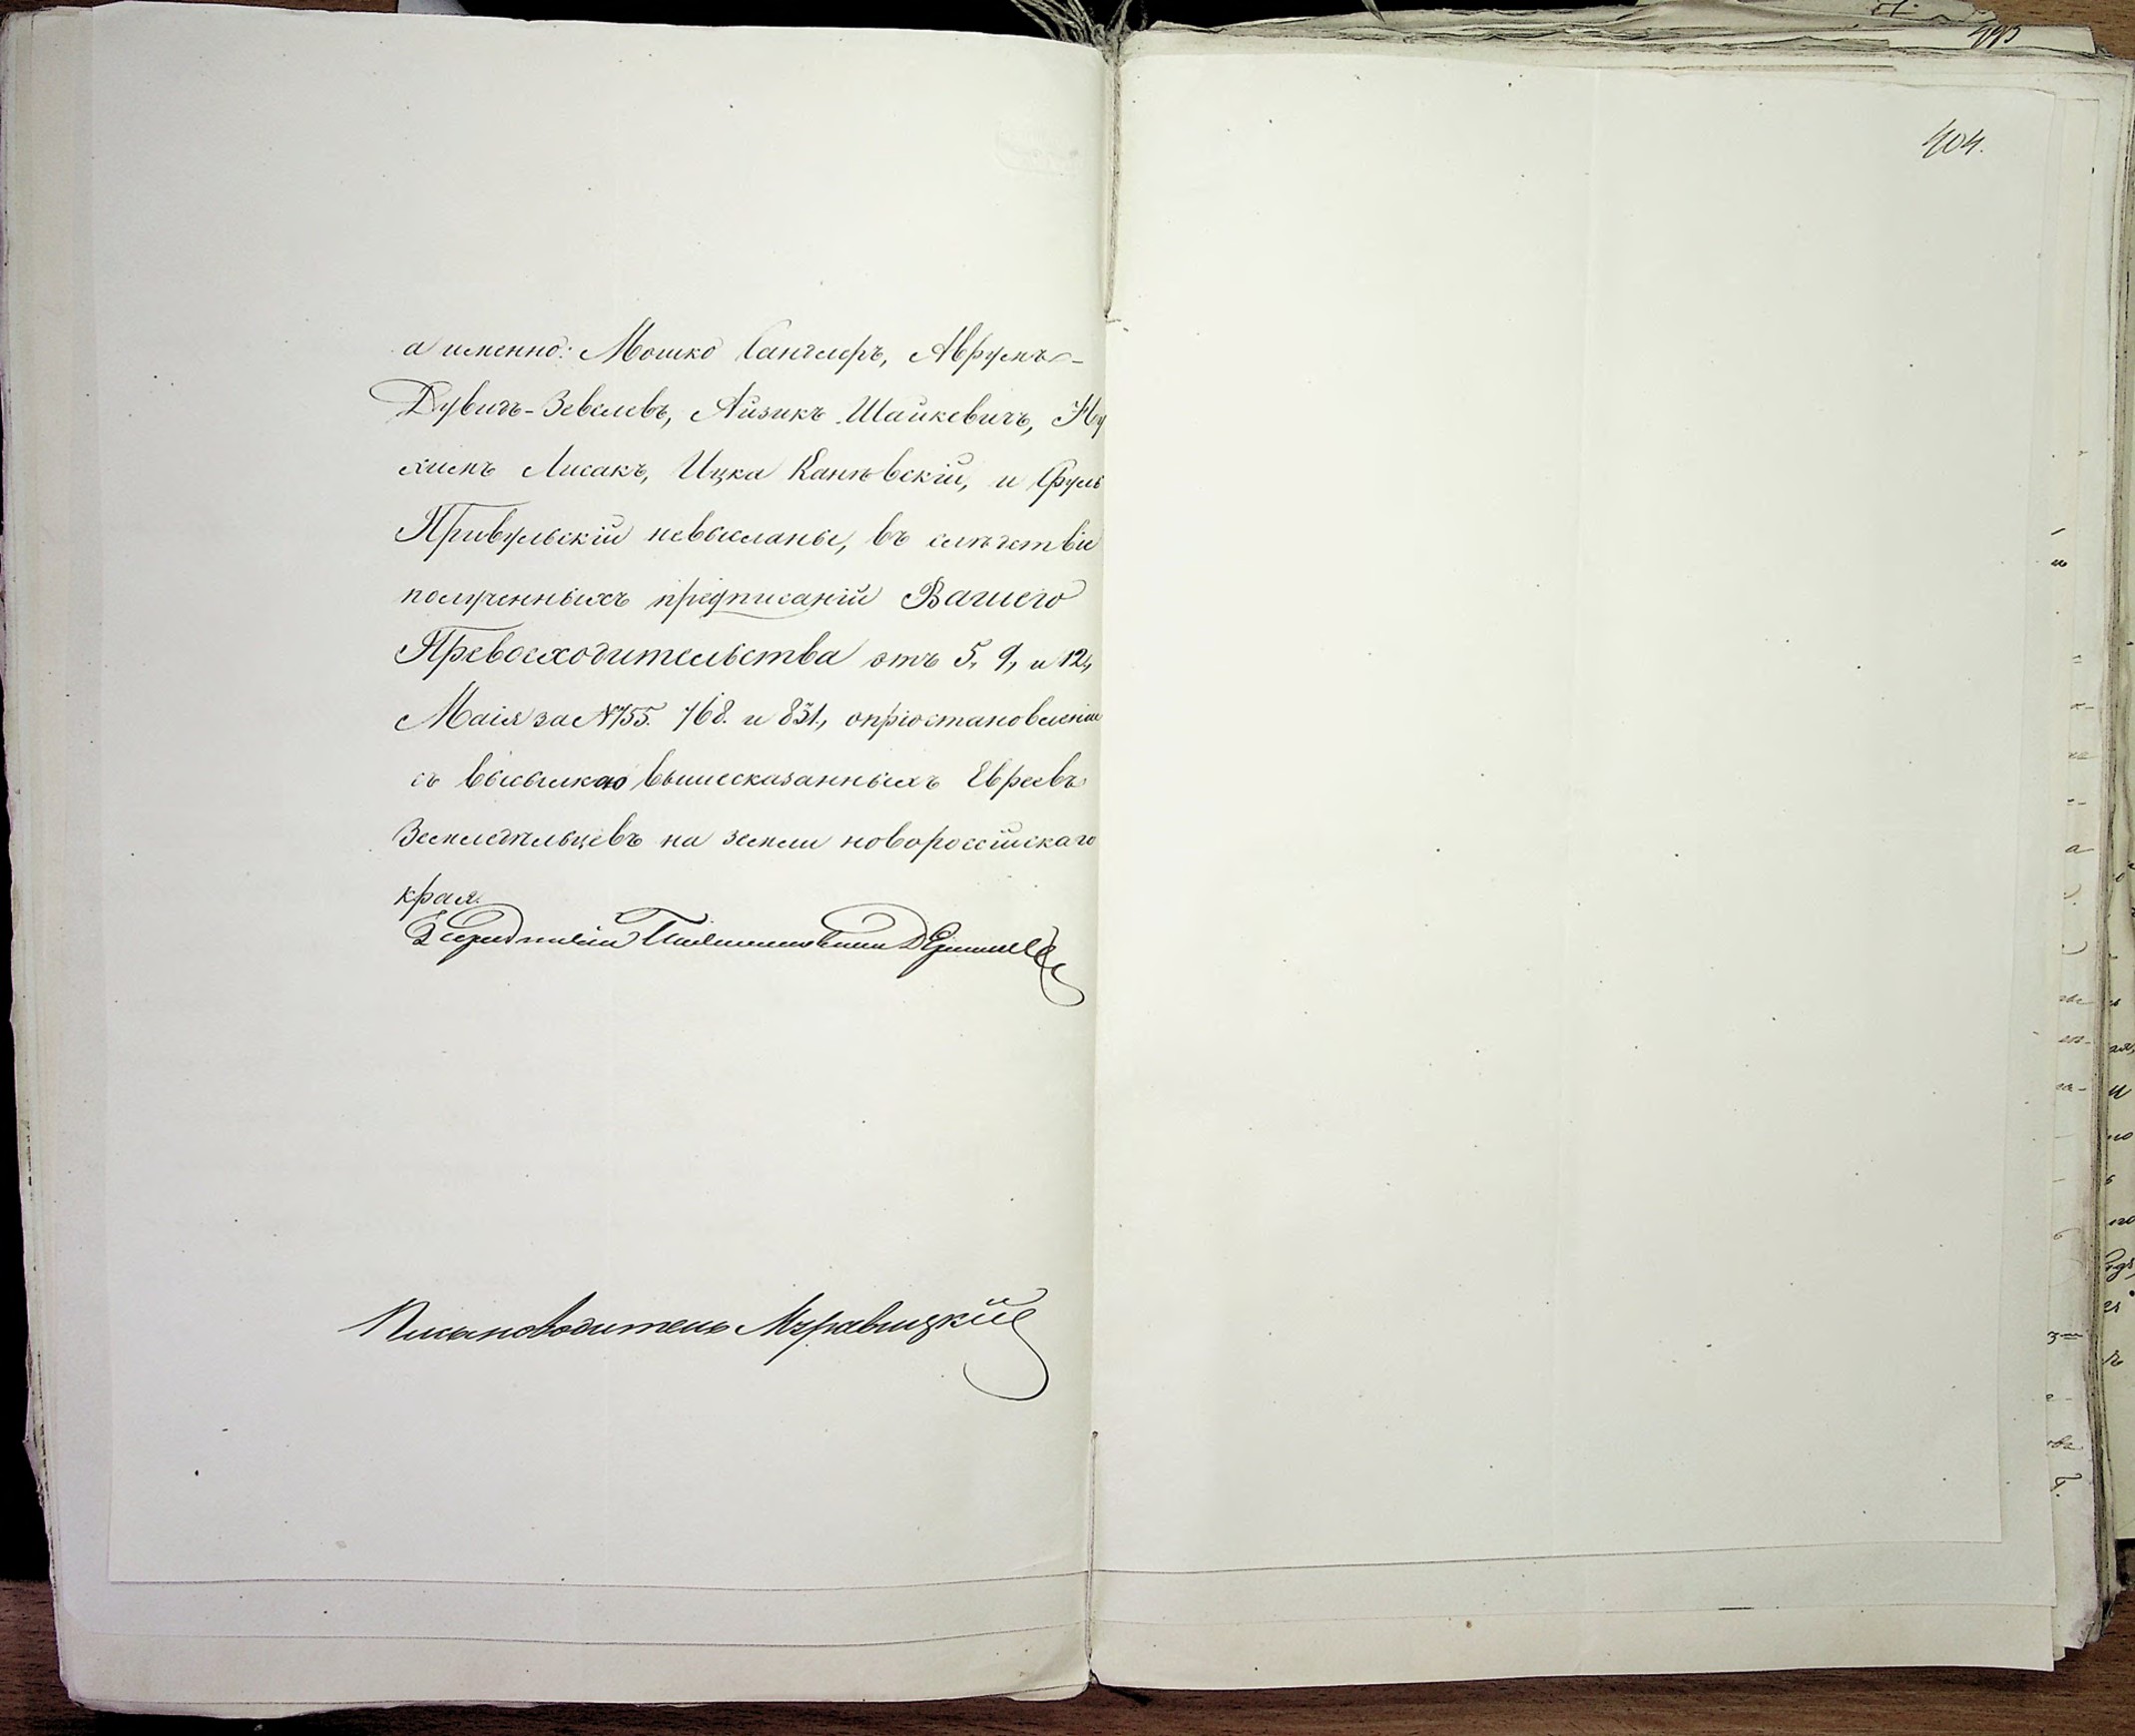 а именно: Мошко Санглеръ, Аврумъ-
Дувидъ-Зевелевъ, Айзикъ Шайкевичъ, Ну
химъ Лисакъ, Ицка Каневскій, и Сруль
Привульскій невысланы, въ слѣдствіе
полученныхъ предписаній Вашего
Превосходительства отъ 5, 9, и 12,
Маія за № 755. 768. и 831, опріостановленіи
съ высылкаю вышесказанныхъ Евреевъ
Земледѣльцевъ на земли новороссійскаго
края.
Письмоводитель Муравицкій
404.